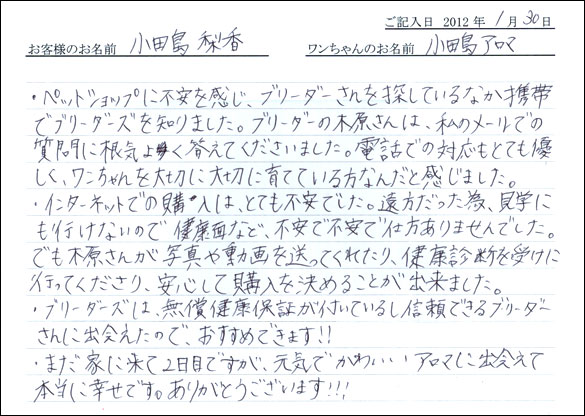 ご記入日 2012 年 1月 30日
お客様のお名前 小田島 梨香 ワンちゃんのお名前 小田島アロマ
・ペットショップに不安を感じ、ブリーダーさんを探しているなか携帯
でブリーダーズを知りました。ブリーダーの木原さんは、私のメールでの
質問に根気よく答えてくださいました。電話での対応もとても優
しく、ワンちゃんを大切に大切に育てている方なんだと感じました。
・インターネットでの購入は、とても不安でした。遠方だった為、見学に
も行けないので健康面など、不安で不安で仕方ありませんでした。
でも木原さんが写真や動画を送ってくれたり、健康診断を受けに
行ってくださり、安心して購入を決めることが出来ました。
・ブリーダーズは、無償健康保証が付いているし信頼できるブリーダー
さんに出会えたので、おすすめできます!!
・まだ家に来て2日目ですが、元気でかわいいアロマに出会えて
本当に幸せです。ありがとうございます!!!